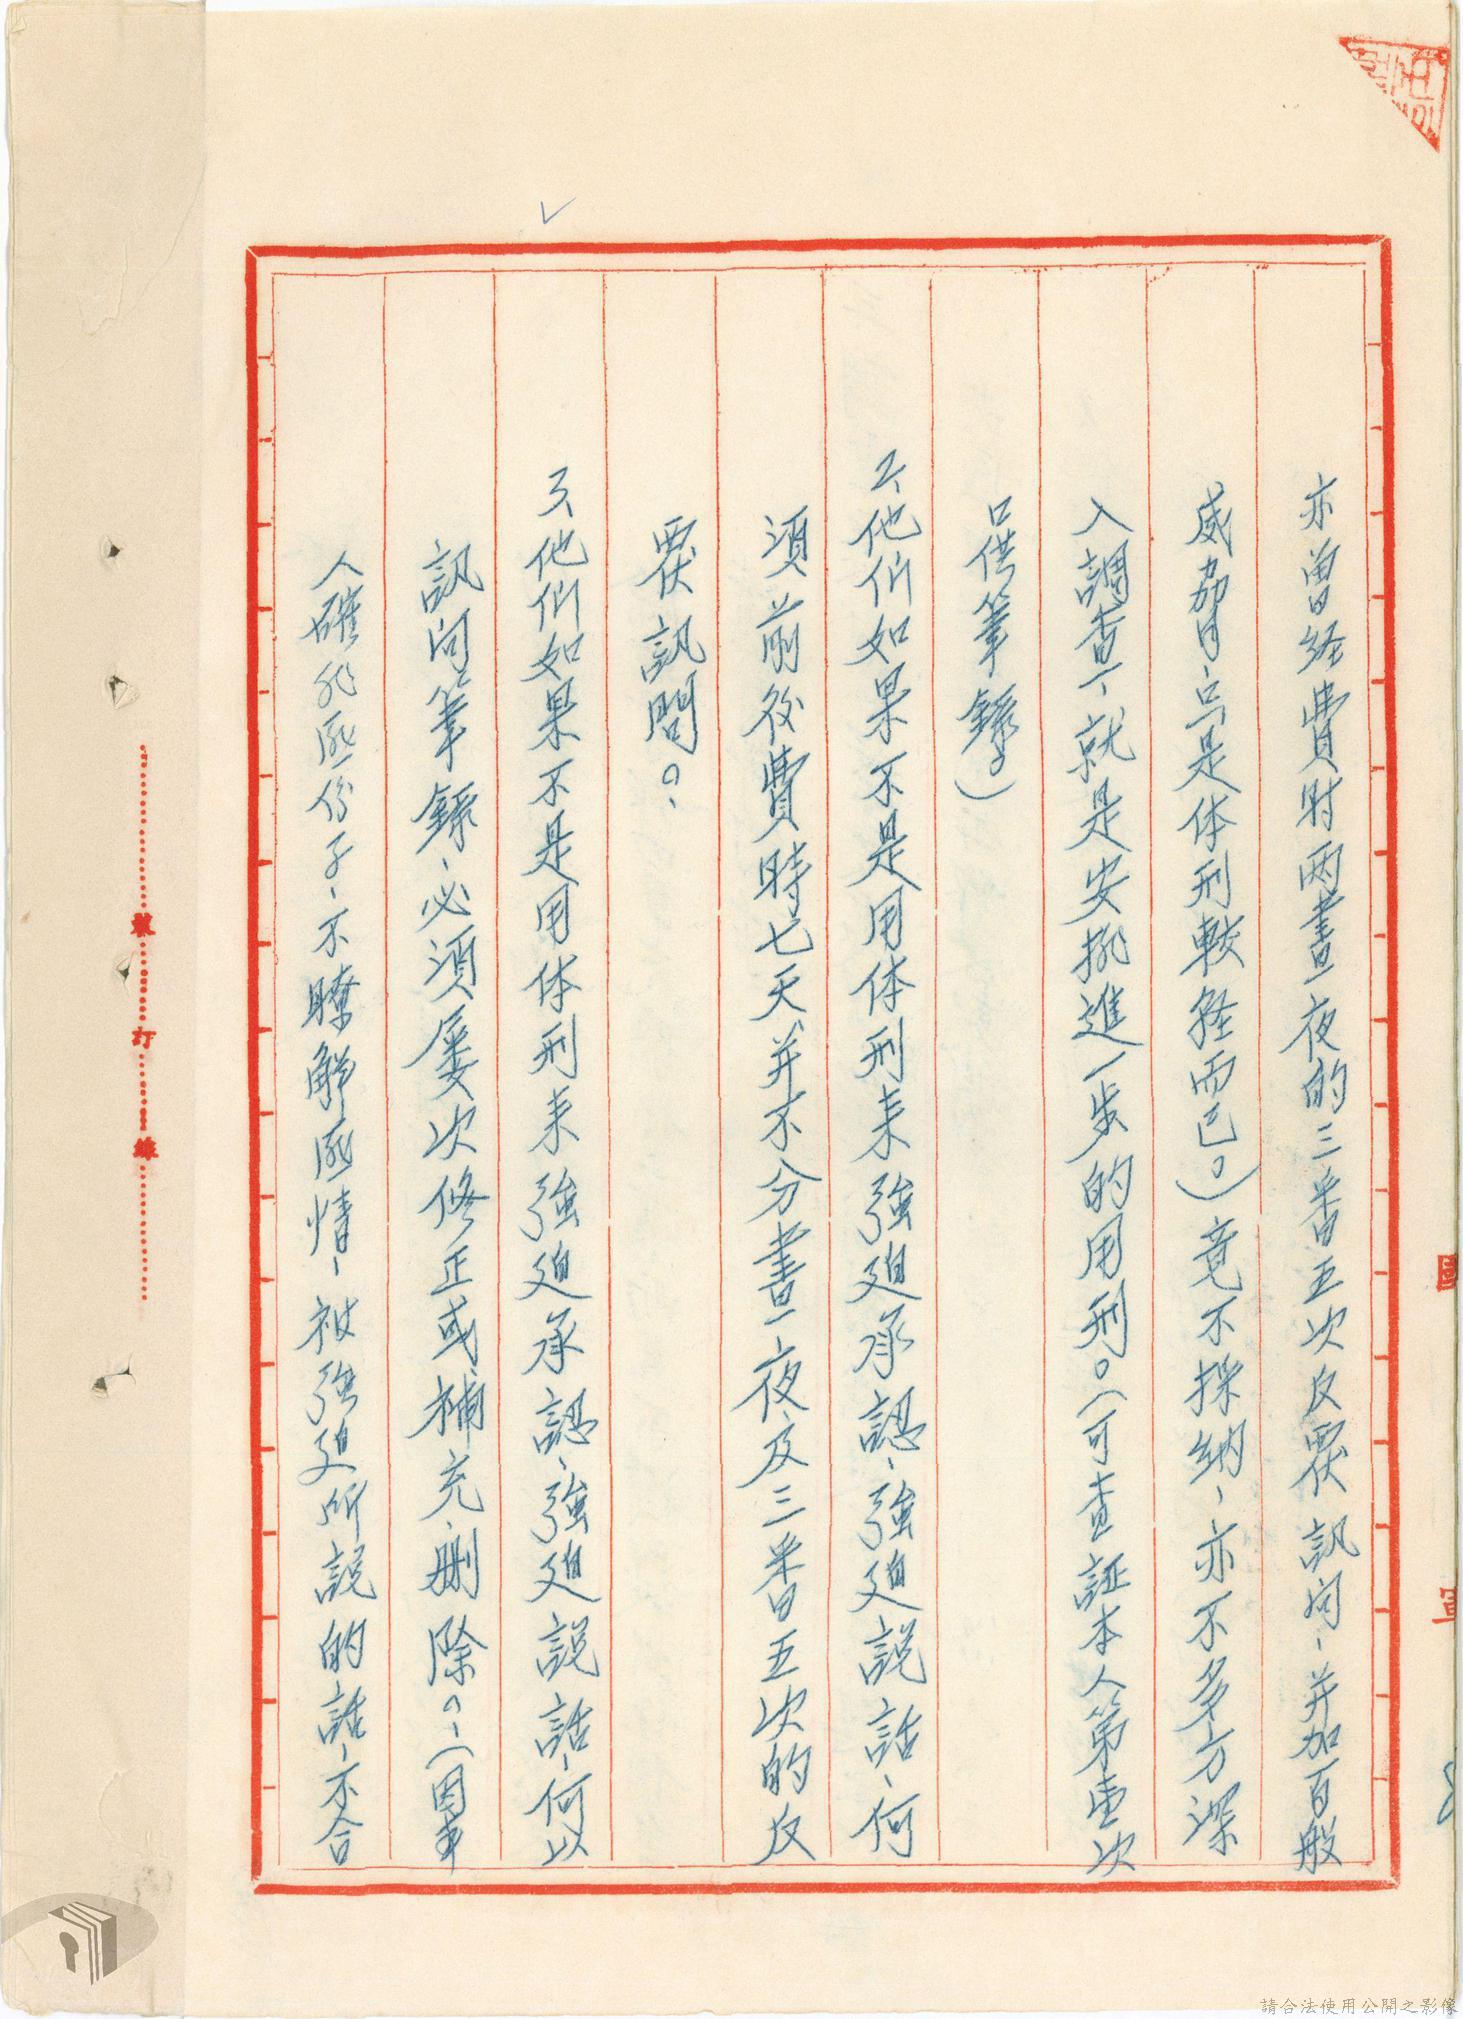 亦曾経費时两晝夜的三番五次反覆訊问、并加百般
威脅、只是体刑較轻而已。)竟不採纳、亦不多方深
入調查、就是安排進一步的用刑。(可查証本人第壹次
口供筆錄)
2、他们如果不是用体刑来強迫承認、強迫説話、何
須前後費時七天并不分晝夜、及三番五次的反
覆訊問。
3、他们如果不是用体刑来強迫承認、強迫説話、何以
訊问筆錄、必須屡次修正或補充、删除。(因本
人確非匪份子、不瞭解匪情、被強迫所説的話、不合
裝
訂
線
請合法使用公開之影像